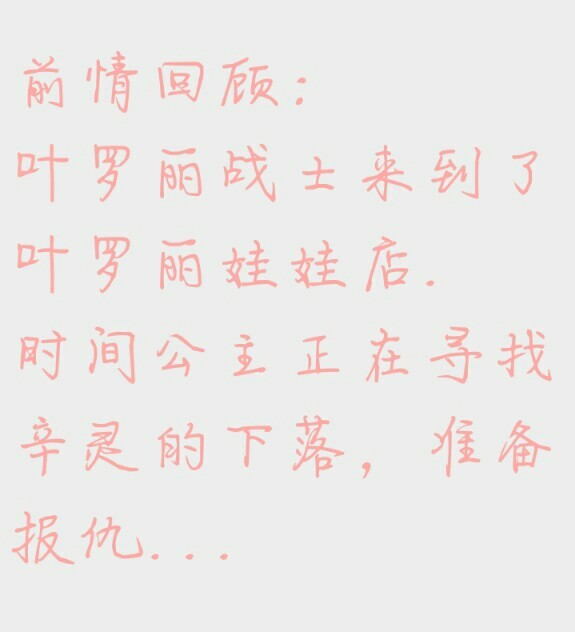 前情回顾:
叶罗丽战士来到了
叶罗丽娃娃店.
时间公主正在寻找
辛灵的下落,准备
报仇...